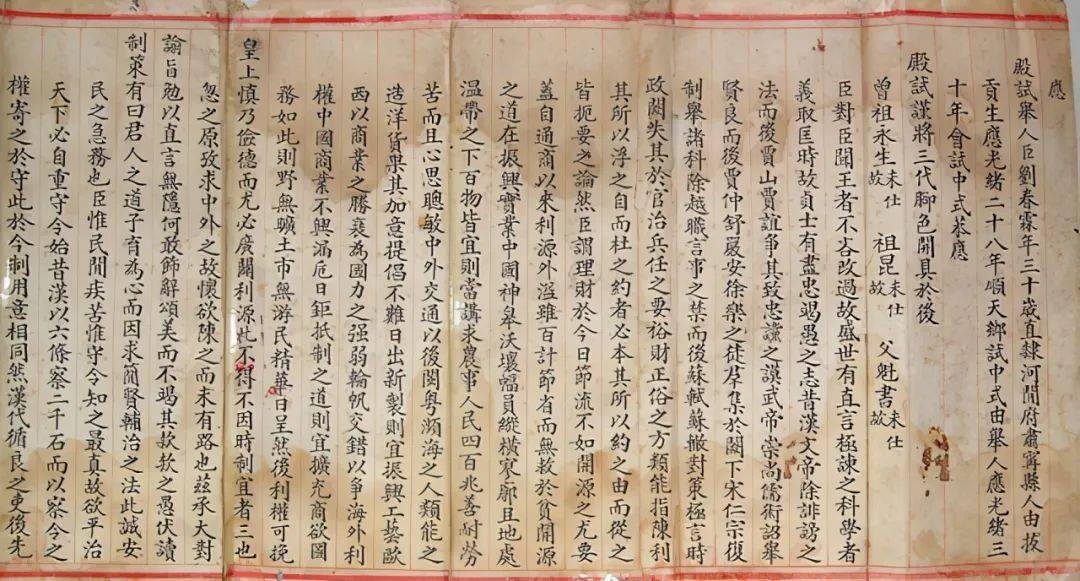 應
殿試舉人臣劉春霖年三十歲直隸河間府肅寧縣人由拔
貢生應光緒二十八年順天鄉試中式由舉人應光緒三
十年會試中式恭應
殿試謹將三代腳色開具於後
曾祖永生未仕故 祖昆未仕故 父魁書未仕故
臣對臣聞王者不吝改過故盛世有直言極諫之科學者
義取匡時故貞士有盡忠竭愚之志昔漢文帝除誹謗之
法而後賈山賈誼爭其致忠讜之謨武帝崇尚儒術詔舉
賢良而後賈仲舒嚴安徐樂之徒羣集於闕下宋仁宗復
制舉諸科除越職言事之禁而後蘇軾蘇轍對策極言時
政闕失其於官治兵任之要裕財正俗之方類能指陳利
其所以浮之自而杜之約者必本其所以約之由而從之
皆扼要之論然臣謂理財於今日節流不如開源之尤要
蓋自通商以來利源外溢雖百計節省而無救於貧開源
之道在振興實業中國神皋沃壤幅員縱橫寥廓且地處
溫帶之下百物皆宜則當講求農事人民四百兆善耐勞
苦而且心思聰敏中外交通以後閩粵瀕海之人類能之
造洋貨果其加意提倡不難日出新製則宜振興工藝歐
西以商業之勝衰為國力之强弱輪帆交錯以爭海外利
權中國商業不興漏卮日鉅抵制之道則宜擴充商欲圖
務如此則野無曠土市無游民精華日呈然後利權可挽
皇上慎乃儉德而尤必廣闢利源此不得不因時制宜者三也
忽之原攷求中外之故懷欲陳之而未有路也茲承大對
諭旨勉以直言無隱何敢飾辭頌美而不竭其款款之愚伏讀
制策有曰君人之道子育為心而因求簡賢輔治之法此誠安
民之急務也臣惟民閒疾苦惟守令知之最真故欲平治
天下必自重守令始昔漢以六條察二千石而以察令之
權寄之於守此於今制用意相同然漢代循良之吏後先